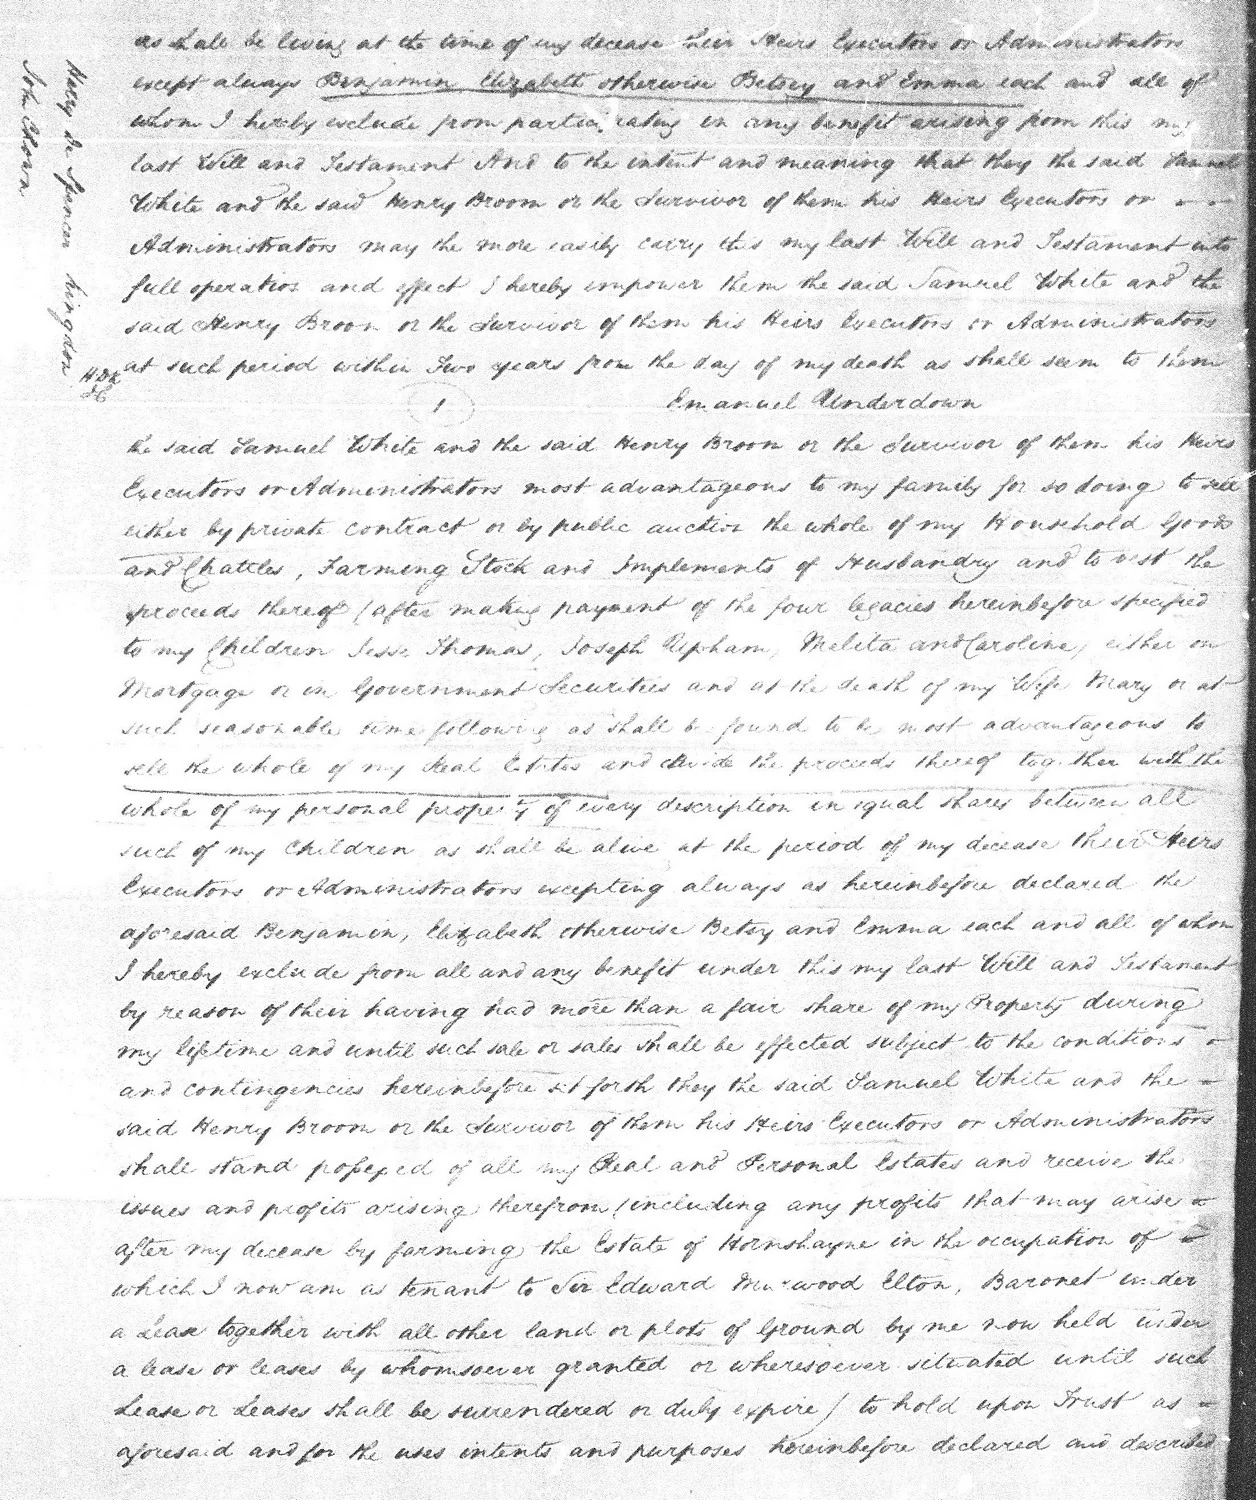 as shall be living at the time of my decease their Heirs Executors or Administrators
except always Benjamin Elizabeth otherwise Betsey and Emma each and all of
whom I hereby exclude from participating in any benefit arising from this my
last Will and Testament And to the intent and meaning that they the said Samuel
White and the said Henry Broom or the Survivor of them his Heirs Executors or - -
Administrators may the more easily carry this my last Will and Testament into
full operation and effect I hereby empower them the said Samuel White and the
said Henry Broom or the Survivor of them his Heirs Executors or Administrators
at such period within Two years from the day of my death as shall seem to them
1 Emanuel Underdown
the said Samuel White and the said Henry Broom or the Survivor of them his Heirs
Executors or Administrators most advantageous to my family for so doing to sell
either by private contract or by public auction the whole of my Household Goods
and Chattles, Farming Stock and Implements of Husbandry and to vest the
proceeds thereof (after making payment of the four legacies hereinbefore specified
to my Children Jesse Thomas, Joseph Upham, Melita and Caroline) either on
Mortgage or in Government Securities and at the death of my Wife Mary or at
such seasonable time following as shall be found to be most advantageous to
sell the whole of my Real Estates and divide the proceeds thereof together with the
whole of my personal property of every description in equal shares between all
such of my Children as shall be alive at the period of my decease their Heirs
Executors or Administrators excepting always as hereinbefore declared the
aforesaid Benjamin, Elizabeth otherwise Betsy and Emma each and all of whom
I hereby exclude from all and any benefit under this my last Will and Testament
by reason of their having had more than a fair share of my Property during
my lifetime and until such sale or sales shall be effected subject to the conditions -
and contingencies hereinbefore set forth they the said Samuel White and the -
said Henry Broom or the Survivor of them his Heirs Executors or Administrators
shall stand possessed of all my Real and Personal Estates and receive the
issues and profits arising therefrom (including any profits that may arise -
after my decease by farming the Estate of Hornshayne in the occupation of -
which I now am as tenant to Sir Edward Marwood Elton, Baronet under
a Lease together with all other land or plots of Ground by me now held under
a lease or leases by whomsoever granted or wheresoever situated until such
Lease or Leases shall be surrendered or duly expire) to hold upon Trust as -
aforesaid and for the uses intents and purposes hereinbefore declared and described
Harry de Spencer Kingdon
John Chown
H.D.K